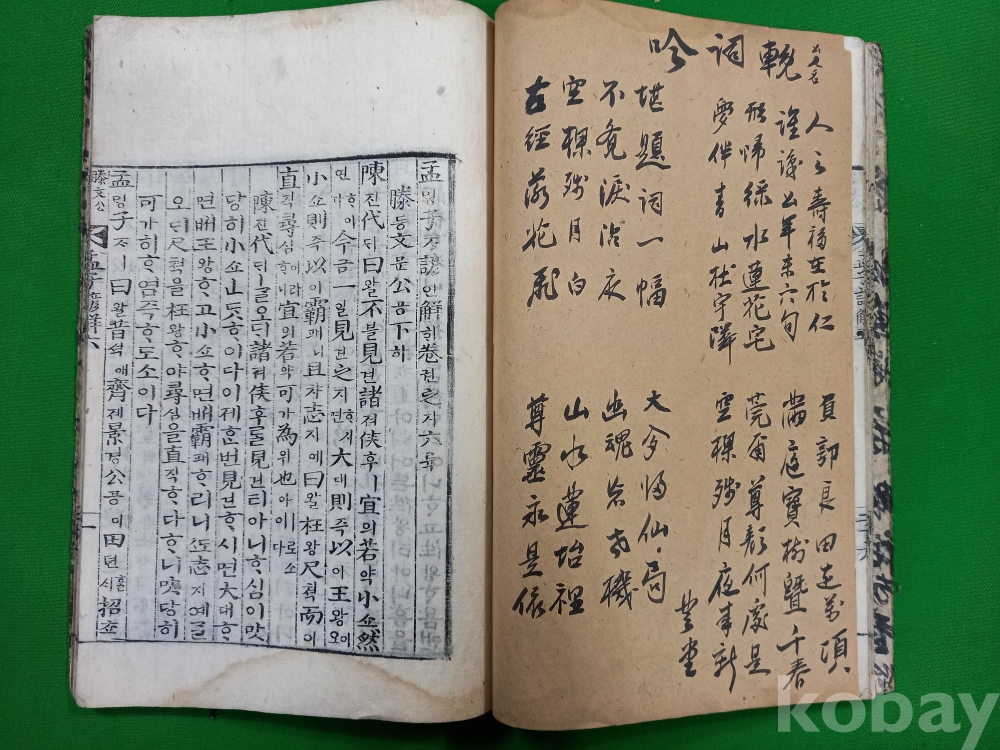 輓詞吟
人之壽福在於仁 員郭良田近萬項
誰識公年未六旬 滿庭寶樹曁千春
形歸綠水蓮花宅 莞爾尊顔何處是
夢伴靑山杜宇隣 空樑殘月夜來新
堪題詞一幅 大夢歸仙局
不覺淚沾衣 幽魂答古磯
空樑殘月白 山水蓮坮裡
古經落花飛 尊靈永是依
孟ᄆᆡᆼ子ᄌᆞ諺언解ᄒᆡ卷권之지六륙
滕등文문公공下하
陳진代ᄃᆡ曰왈不블見견諸져侯후ㅣ宜의若약小쇼然
연ᄒᆞ이다今금一일見견之지ᄒᆞ시면大대則즉以이王왕이오
小쇼則즉以이霸패니且챠志지예曰왈枉왕尺쳑而이
直직尋심이라ᄒᆞ니宜의若약可가為위也야ㅣ로소이다
陳진代ᄃᆡᄀᆞᆯ오ᄃᆡ諸져侯후ᄅᆞᆯ見견티아니ᄒᆞ심이맛
당히小쇼ᄒᆞᆫᄃᆞᆺᄒᆞ이다이제ᄒᆞᆫ번見견ᄒᆞ시면大대ᄒᆞ
면ᄡᅥ王왕ᄒᆞ고小쇼ᄒᆞ면ᄡᅥ霸패ᄒᆞ리니ᄯᅩ志지예ᄀᆞᆯ
오ᄃᆡ尺쳑을枉왕ᄒᆞ야尋심을直직ᄒᆞ다ᄒᆞ니맛당히
可가히ᄒᆞ염즉ᄒᆞ도소이다
孟ᄆᆡᆼ子ᄌᆞㅣ曰왈昔셕애齊졔景경公공이田뎐ᄒᆞᆯᄉᆡ招쵸
滕文公
孟子諺解六
一
kobay